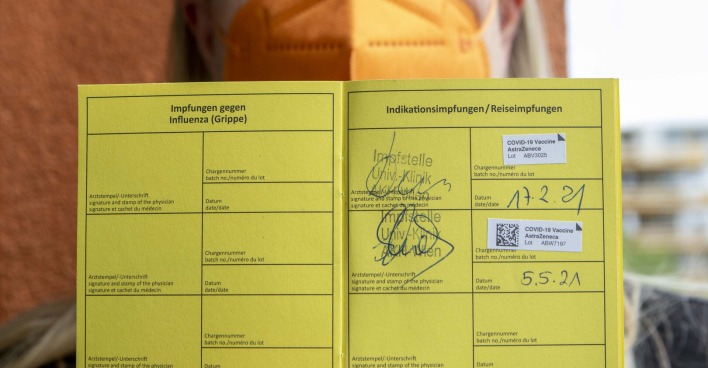 Impfungen gegen
Influenza (Grippe)
Chargennummer
batch no./numéro du lot
Arztstempel/-Unterschrift
signature and stamp of the physician
signature et cachet du médecin
Datum
date/date
Chargennummer
batch no./numéro du lot
Arztstempel/-Unterschrift
signature and stamp of the physician
signature et cachet du médecin
Datum
date/date
Chargennummer
batch no./numéro du lot
Arztstempel/-Unterschrift
signature and stamp of the physician
signature et cachet du médecin
Datum
Indikationsimpfungen/Reiseimpfungen
Impfstelle
Univ.-Klinik
COVID-19 Vaccine
AstraZeneca
Lot ABV3025
Chargennummer
batch no./numéro du lot
Arztstempel/-Unterschrift
signature and stamp of the physician
signature et cachet du médecin
Datum
date/date
17.2.21
Impfstelle
Univ.-Klinik
AKH Wien
COVID-19 Vaccine
AstraZeneca
Lot ABW7197
batch no./numéro du lot
Arztstempel/-Unterschrift
signature and stamp of the physician
signature et cachet du médecin
Datum
date/date
5.5.21
Chargennummer
batch no./numéro du lot
Arztstempel/-Unterschrift
signature and stamp of the physician
signature et cachet du médecin
Datum